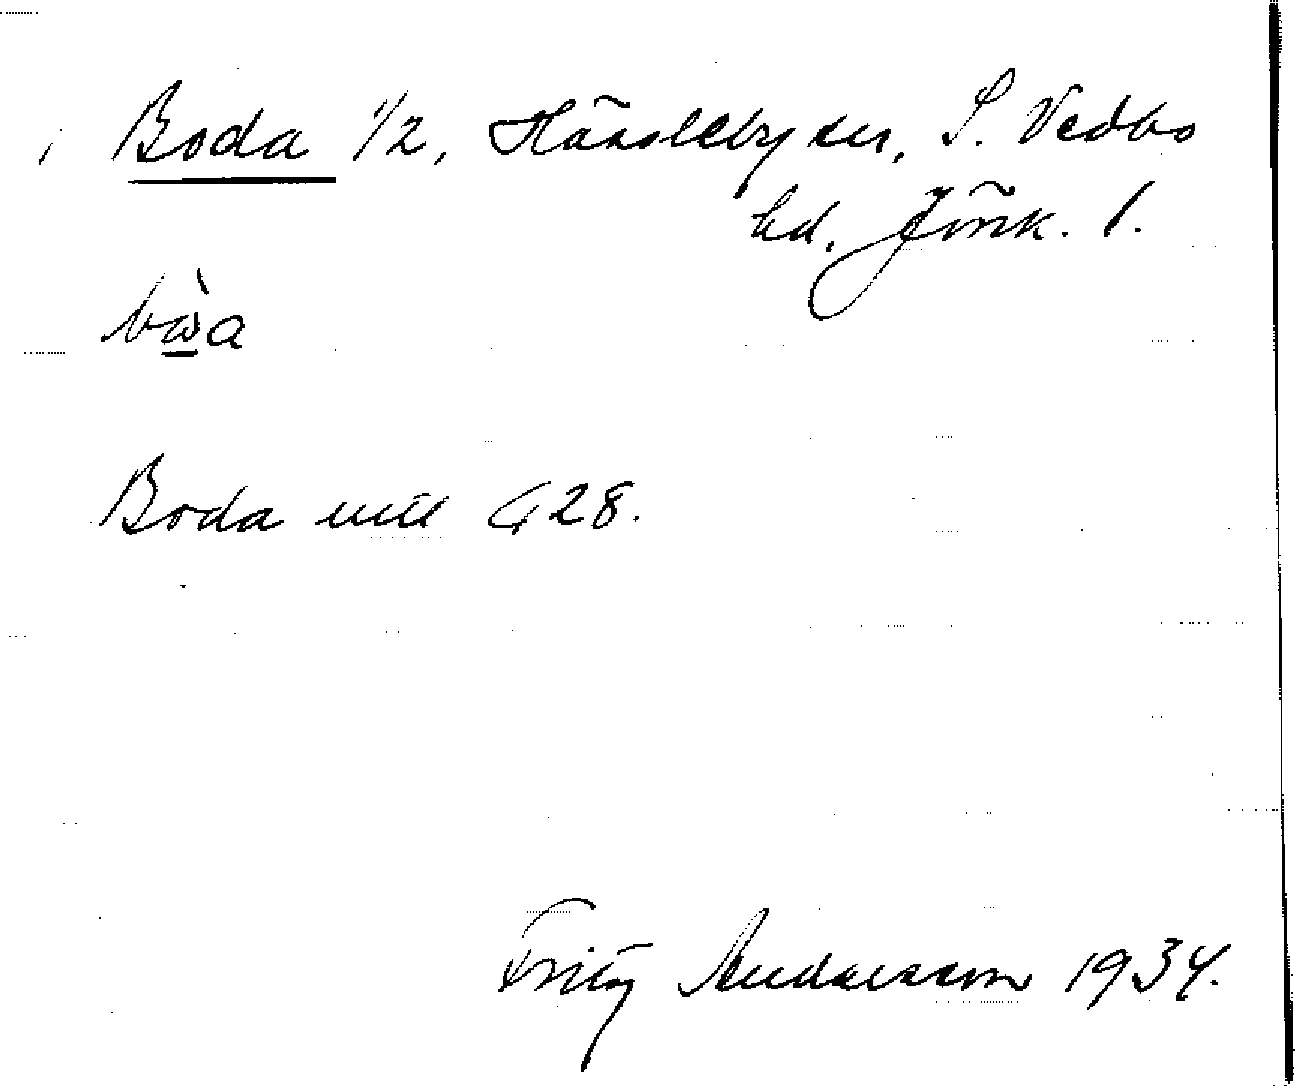 Boda 1/2, Hässleby sn, S. Vedbo
hd. Jönk. l.
bòa
Boda mtl G 28.
Fritz Andersson 1934.